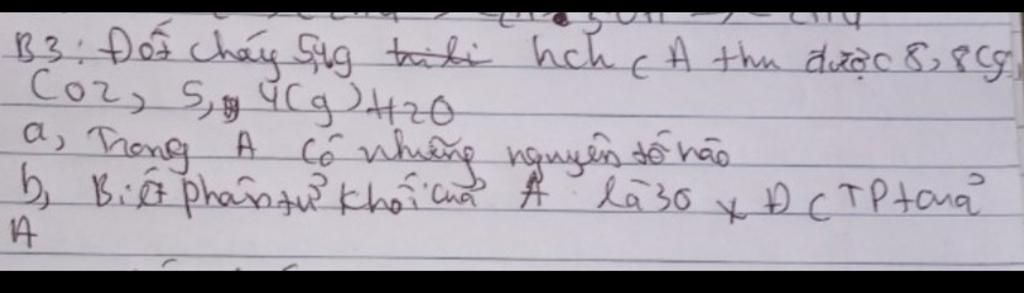 B3: Đốt cháy 5,4g hch c A thu được 8,8(g)
CO2, 5, 4(g) H2O
a, Trong A có những nguyên tố nào
b, Biết phân tử khối của A là 30 x Đ CTPt của
A